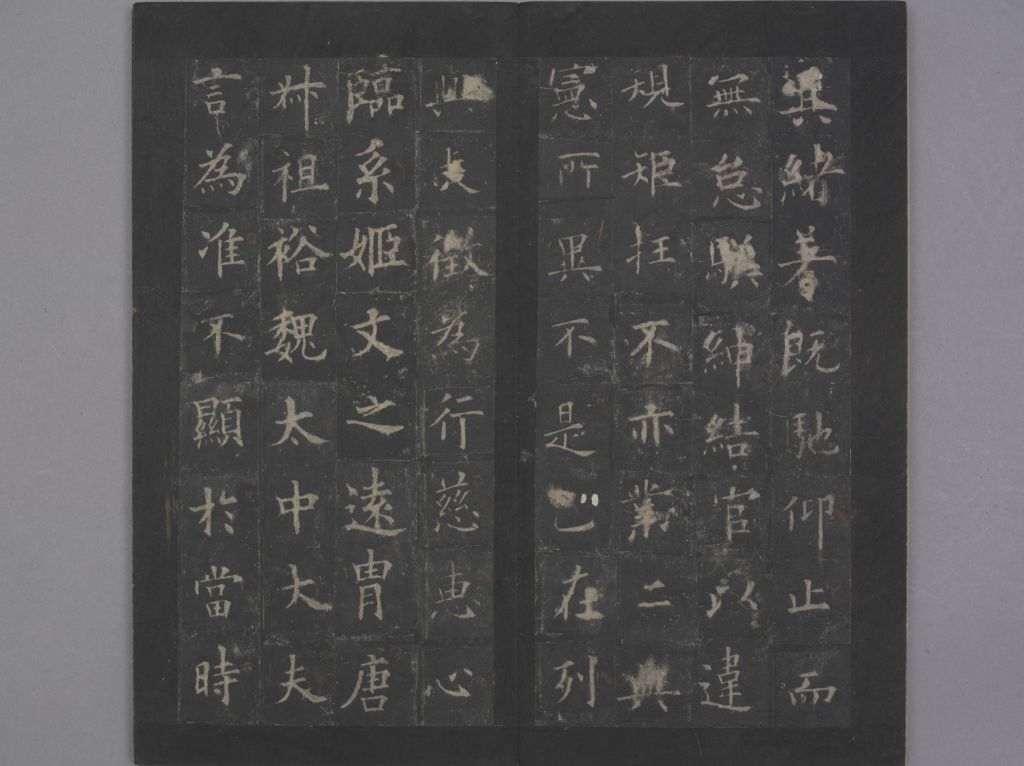 其緒著既馳仰止而
無怠紳結官以違
規矩抂不亦二典
憲所異不是已在列
典夫徵為行慈惠心
臨系姬文之遠胄唐
叔祖裕魏太中大夫
言為准不顯於當時